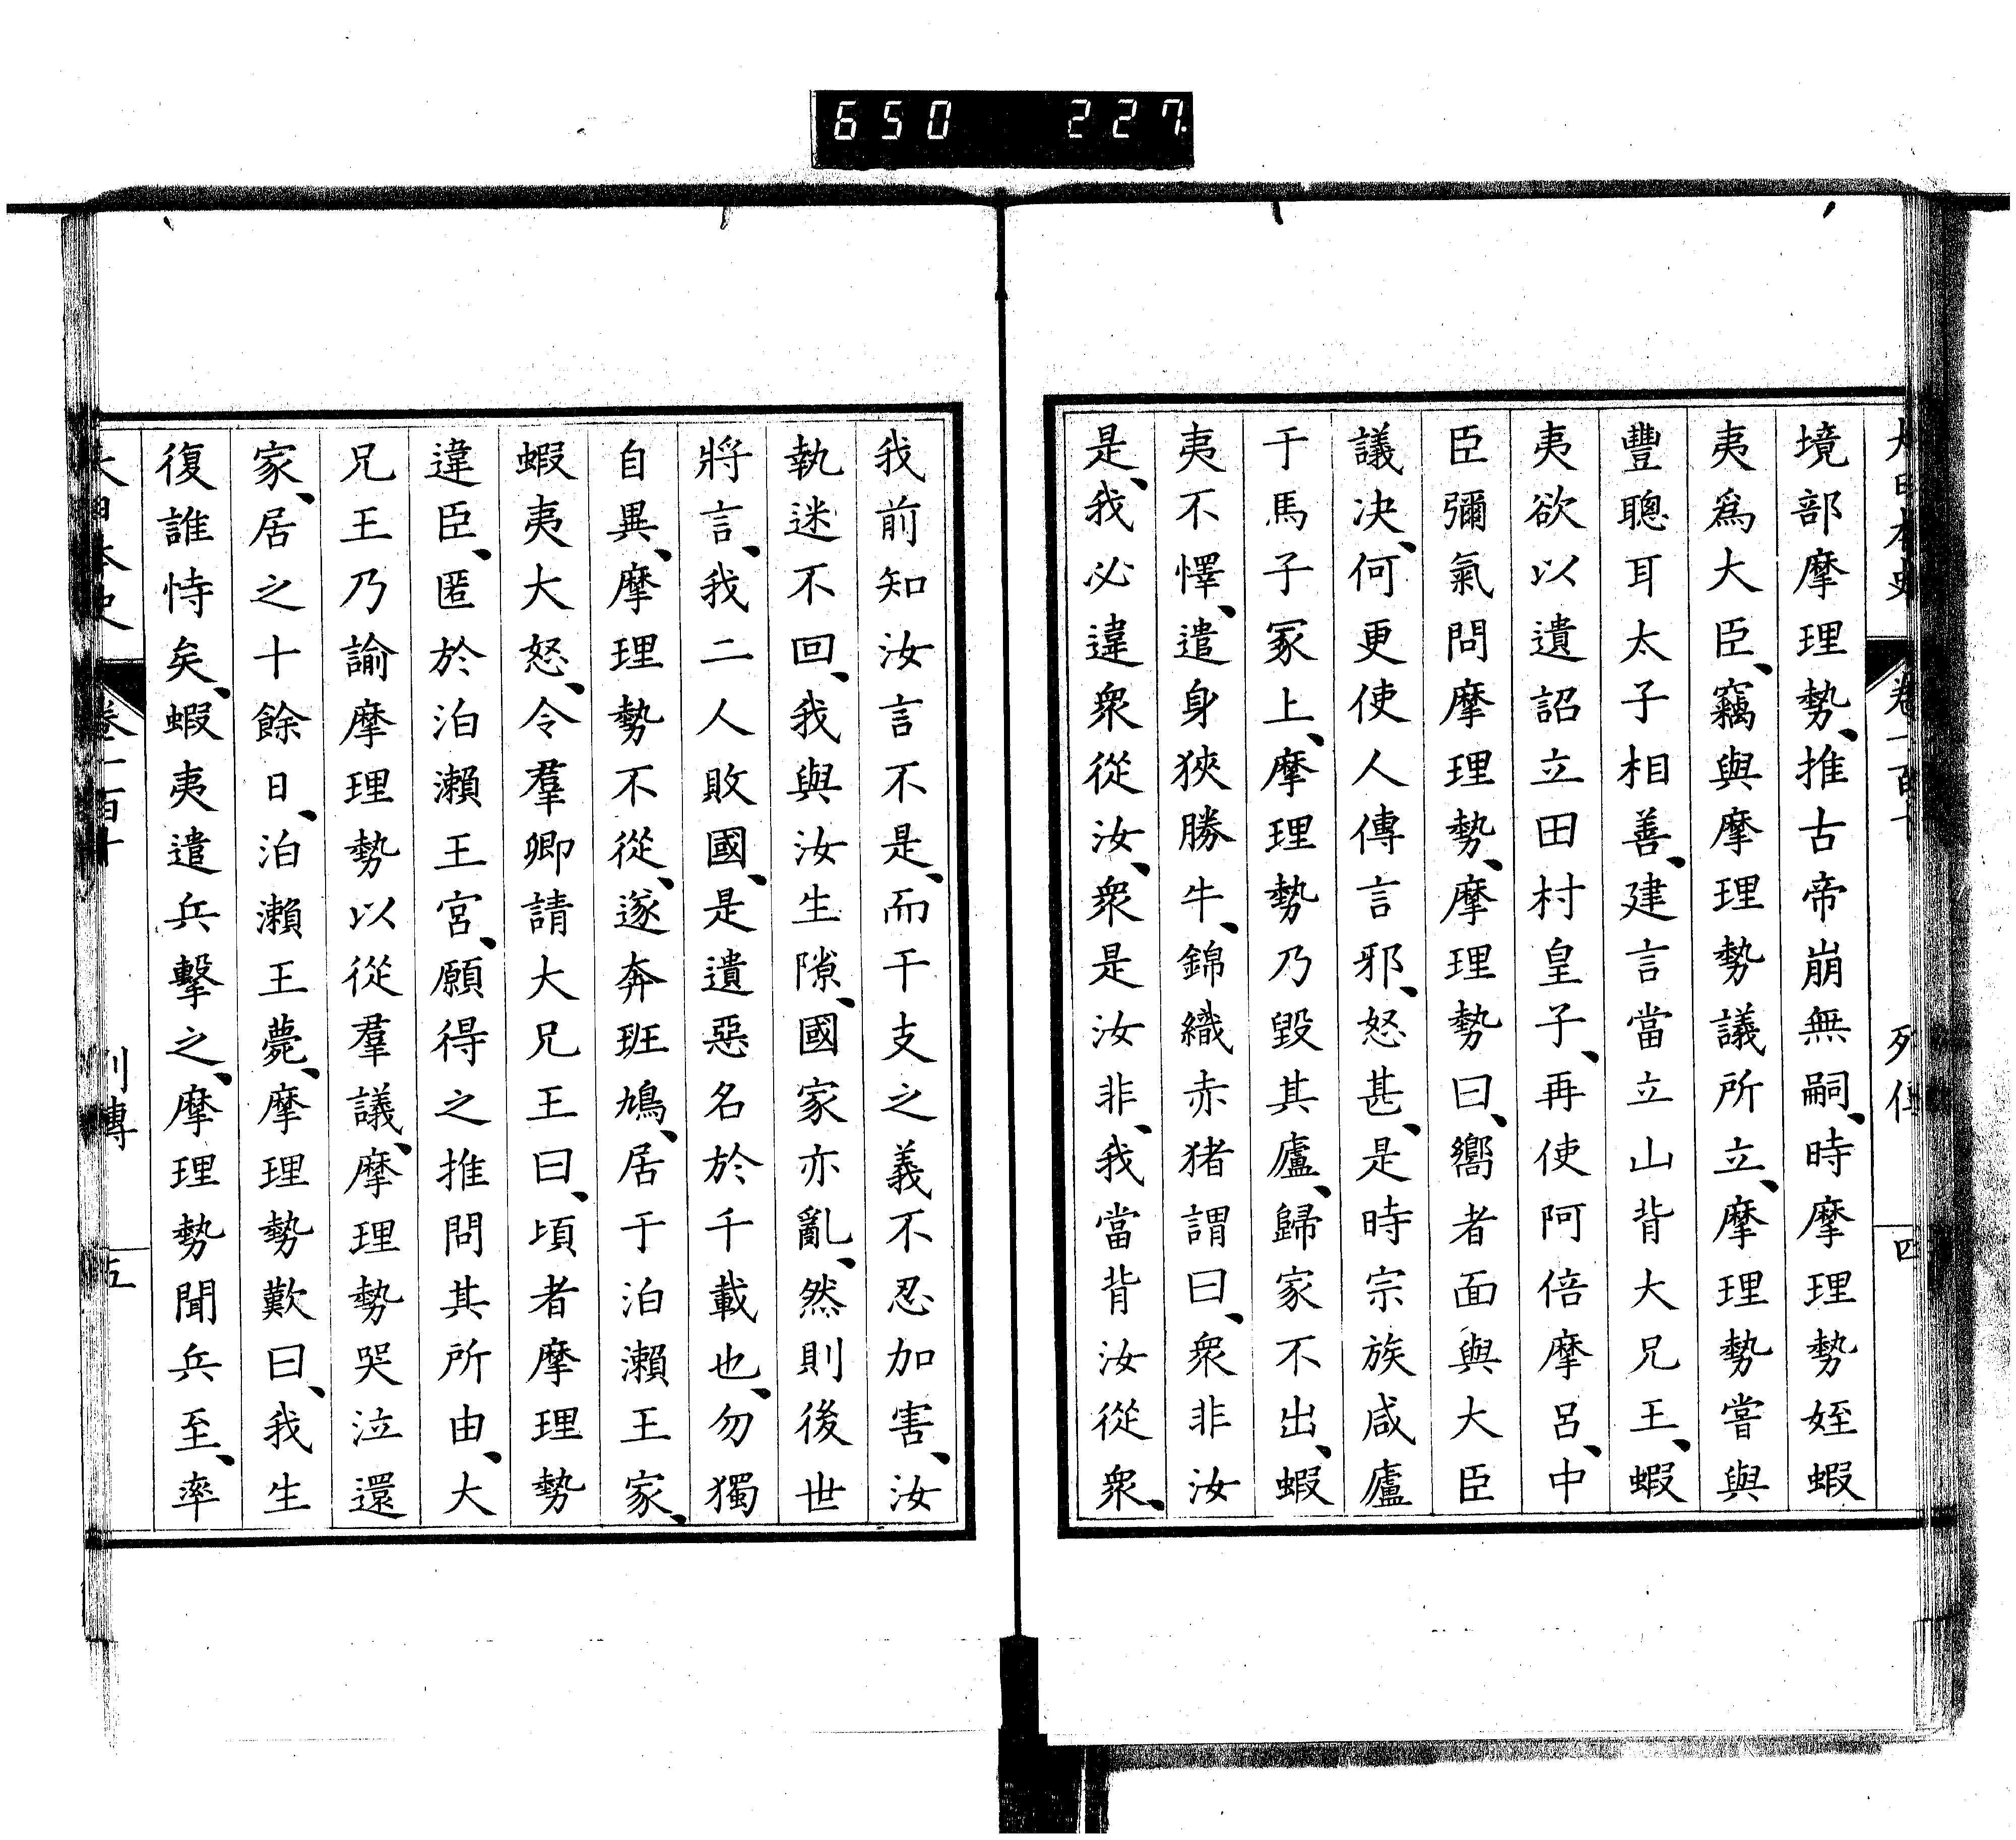 650 227
大日本史 卷一百十 列傳 四
境部摩理勢、推古帝崩無嗣、時摩理勢姪蝦
夷爲大臣、竊與摩理勢議所立、摩理勢嘗與
豐聰耳太子相善、建言當立山背大兄王、蝦
夷欲以遺詔立田村皇子、再使阿倍摩呂、中
臣彌氣問摩理勢、摩理勢曰、嚮者面與大臣
議决、何更使人傳言邪、怒甚、是時宗族咸廬
于馬子冢上、摩理勢乃毀其廬、歸家不出、蝦
夷不懌、遣身狹勝牛、錦織赤猪謂曰、衆非汝
是、我必違衆從汝、衆是汝非、我當背汝從衆、
我前知汝言不是、而干支之義不忍加害、汝
執迷不回、我與汝生隙、國家亦亂、然則後世
將言、我二人敗國、是遺惡名於千載也、勿獨
自異、摩理勢不從、遂奔班鳩、居于泊瀨王家、
蝦夷大怒、令羣卿請大兄王曰、頃者摩理勢
違臣、匿於泊瀨王宮、願得之推問其所由、大
兄王乃諭摩理勢以從羣議、摩理勢哭泣還
家、居之十餘日、泊瀨王薨、摩理勢歎曰、我生
復誰恃矣、蝦夷遣兵擊之、摩理勢聞兵至、率
大日本史 卷一百十 列傳 五